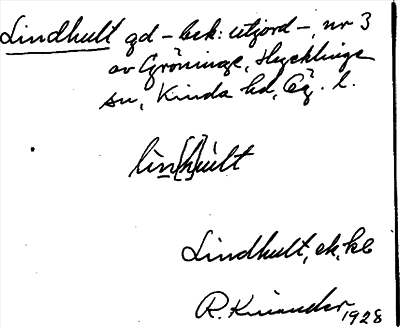 Lindhult gd – bek: utjord –, nr 3
av Gröninge, Hycklinge
sn, Kinda hd, Ög. l.
lin[h]ult
Lindhult, ek, kb
R. Kinander 1928